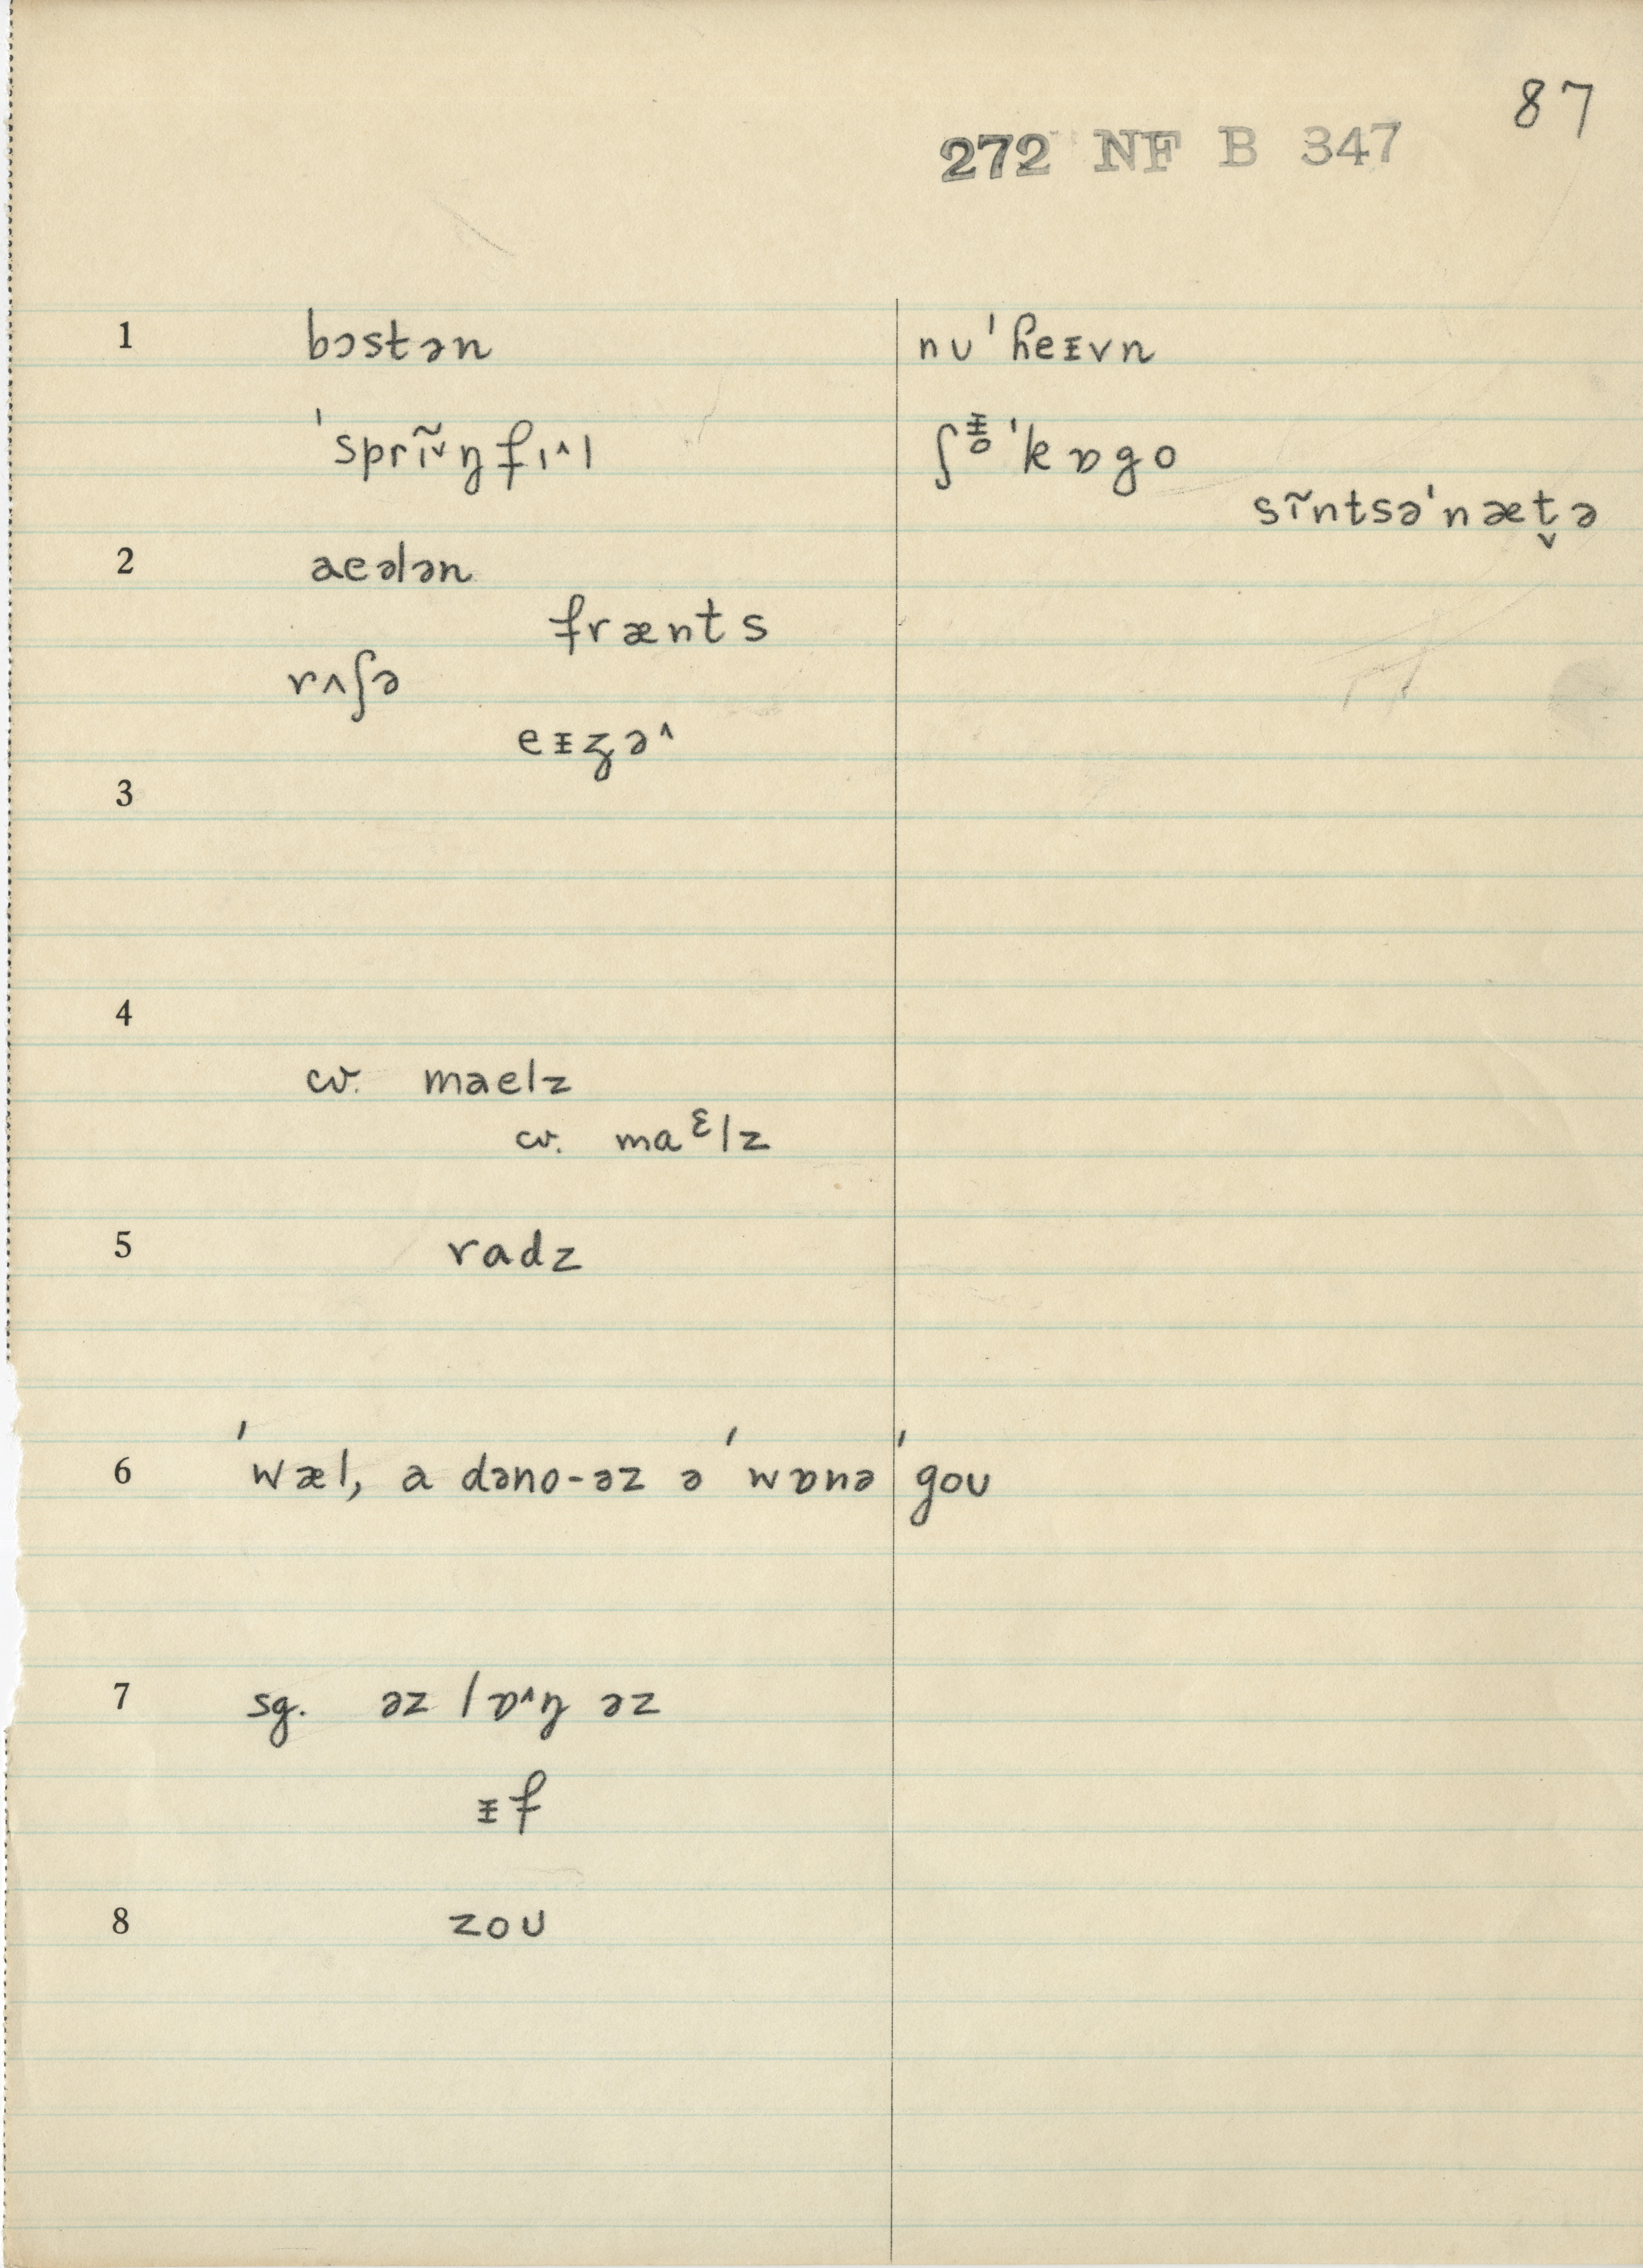 87
272 NF B 347
1 bɔstən nʊˈɦeᵻvn
ˈsprĩ˅ŋfɪ˄l ʃᵻˈkɒgo
sĩntsəˈnæt̬ə
2 aeələn
frænts
rʌʃə
eᵻʒə˄
3
4
cv. maelz
cv. maᵋlz
5 radz
6 ˈwæl, a dəno-əz ə ˈwɒnə ˈgoʊ
7 sg. əz lɒ˄ŋ əz
ᵻf
8 zoʊ